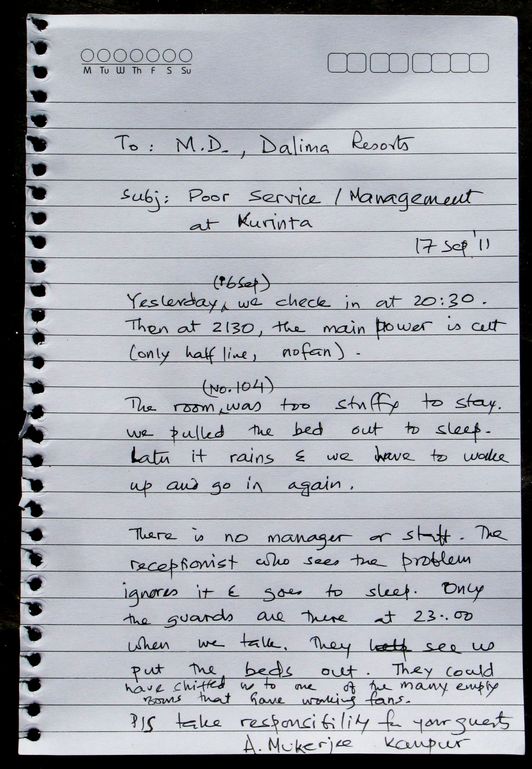 M Tu W Th F S Su
To: M.D., Dalima Resorts
Subj: Poor Service / Management
at Kurinta
17 Sep '11
(16 Sep)
Yesterday, we check in at 20:30.
Then at 2130, the main power is cut
(only half line, no fan).
(No. 104)
The room was too stuffy to stay.
we pulled the bed out to sleep.
Later it rains & we have to wake
up and go in again.
There is no manager or staff. The
receptionist who sees the problem
ignores it & goes to sleep. Only
the guards are there at 23:00
when we talk. They see us
put the beds out. They could
have shifted us to one of the many empty
rooms that have working fans.
Pls take responsibility for your guests
A. Mukerjee Kanpur